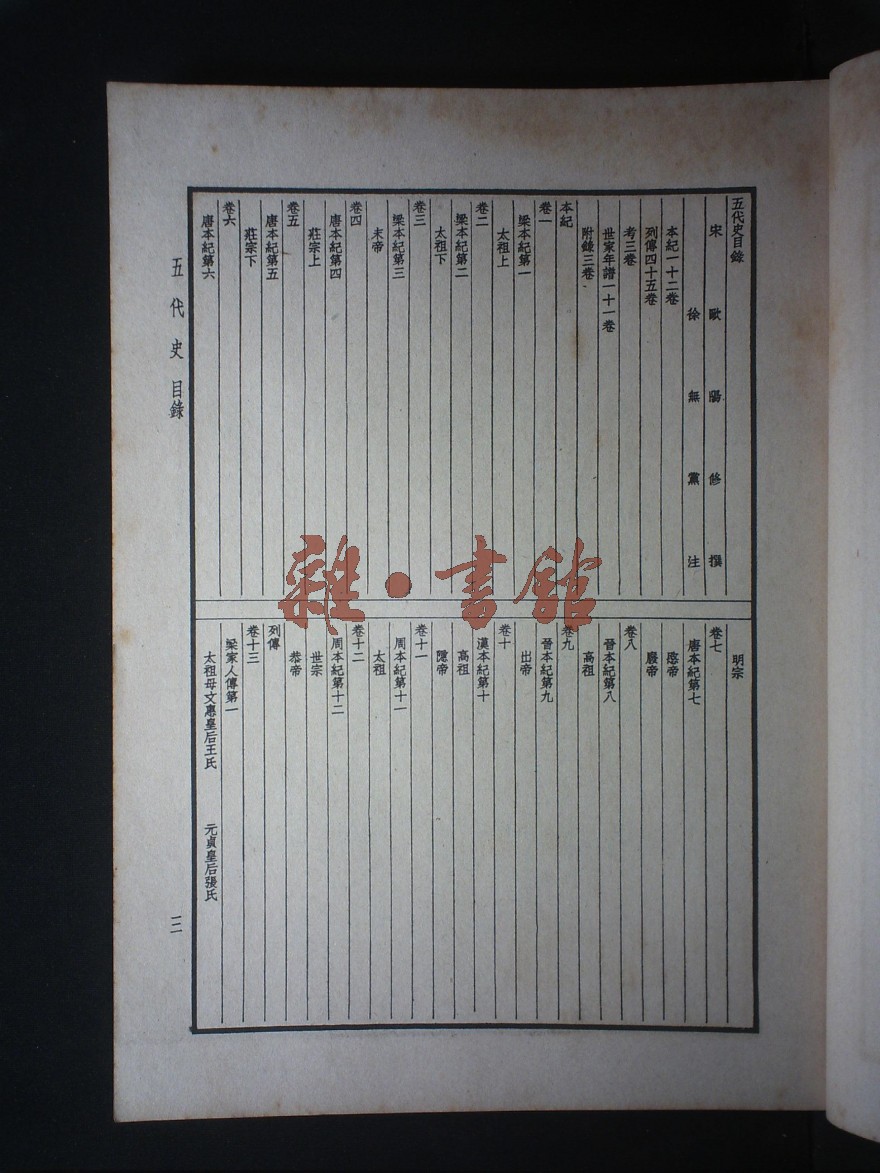 五代史目錄
宋 歐陽修撰
徐無黨注
本紀一十二卷
列傳四十五卷
考三卷
世家年譜一十一卷
附錄三卷
本紀
卷一
梁本紀第一
太祖上
卷二
梁本紀第二
太祖下
卷三
梁本紀第三
末帝
卷四
唐本紀第四
莊宗上
卷五
唐本紀第五
莊宗下
卷六
唐本紀第六
明宗
卷七
唐本紀第七
愍帝
廢帝
卷八
晉本紀第八
高祖
卷九
晉本紀第九
出帝
卷十
漢本紀第十
高祖
隱帝
卷十一
周本紀第十一
太祖
卷十二
周本紀第十二
世宗
恭帝
列傳
卷十三
梁家人傳第一
太祖母文惠皇后王氏 元貞皇后張氏
五代史 目錄
三
雜·書館